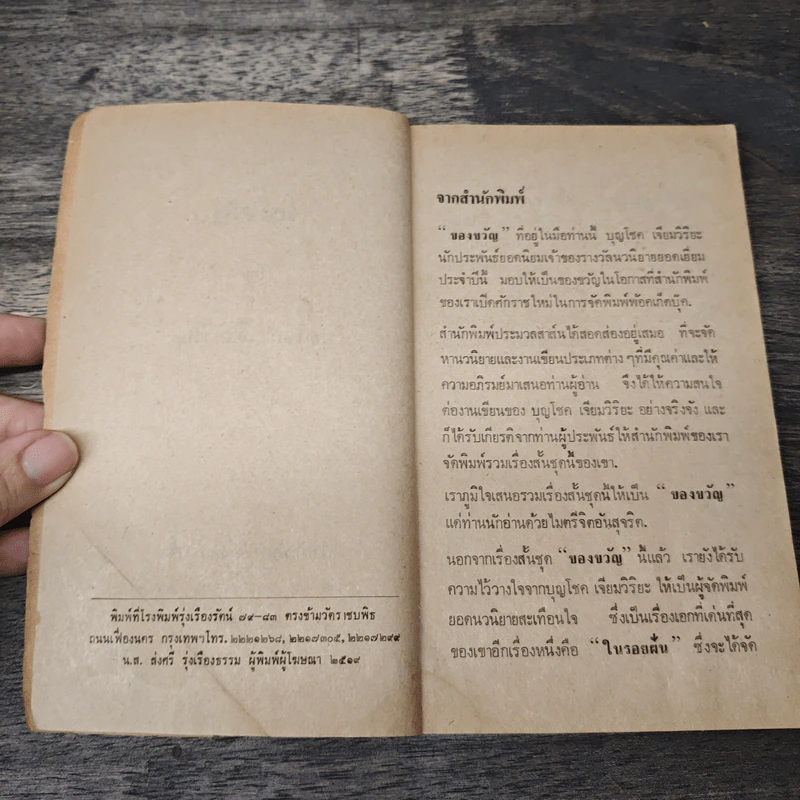 พิมพ์ที่โรงพิมพ์รุ่งเรืองรัตน์ ๗๙–๘๓ ตรงข้ามวัดราชบพิธ
ถนนเฟื่องนคร กรุงเทพฯ โทร. ๒๒๒๑๒๖๘, ๒๒๑๗๓๐๕, ๒๒๑๗๒๙๙
น.ส. ส่งศรี รุ่งเรืองธรรม ผู้พิมพ์ผู้โฆษณา ๒๕๑๙
จากสำนักพิมพ์
“ ของขวัญ ” ที่อยู่ในมือท่านนี้ บุญโชค เจียมวิริยะ
นักประพันธ์ยอดนิยมเจ้าของรางวัลนวนิยายยอดเยี่ยม
ประจำปีนี้ มอบให้เป็นของขวัญในโอกาสที่สำนักพิมพ์
ของเราเบิดศักราชใหม่ในการจัดพิมพ์พ้อคเก็ตบุ๊ค.
สำนักพิมพ์ประมวลสาส์นได้สอดส่องอยู่เสมอ ที่จะจัด
หานวนิยายและงานเขียนประเภทต่าง ๆที่มีคุณค่าและให้
ความอภิรมย์มาเสนอท่านผู้อ่าน จึงได้ให้ความสนใจ
ต่องานเขียนของ บุญโชค เจียมวิริยะ อย่างจริงจัง และ
ก็ได้รับเกียรติจากท่านผู้ประพันธ์ให้สำนักพิมพ์ของเรา
จัดพิมพ์รวมเรื่องสั้นชุดนี้ของเขา.
เราภูมิใจเสนอรวมเรื่องสั้นชุดนี้ให้เป็น “ ของขวัญ ”
แด่ท่านนักอ่านด้วยไมตรีจิตอันสุจริต.
นอกจากเรื่องสั้นชุด “ของขวัญ ” นี้แล้ว เรายังได้รับ
ความไว้วางใจจากบุญโชค เจียมวิริยะ ให้เป็นผู้จัดพิมพ์
ยอดนวนิยายสะเทือนใจ ซึ่งเป็นเรื่องเอกที่เด่นที่สุด
ของเขาอีกเรื่องหนึ่งคือ “ในรอยฝัน” ซึ่งจะได้จัด